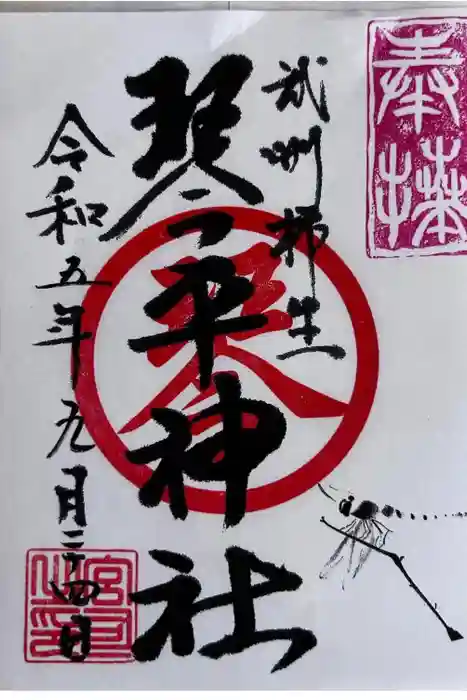 奉拝
武州柿生
琴平神社
琴
令和五年九月二十四日
宮司之印